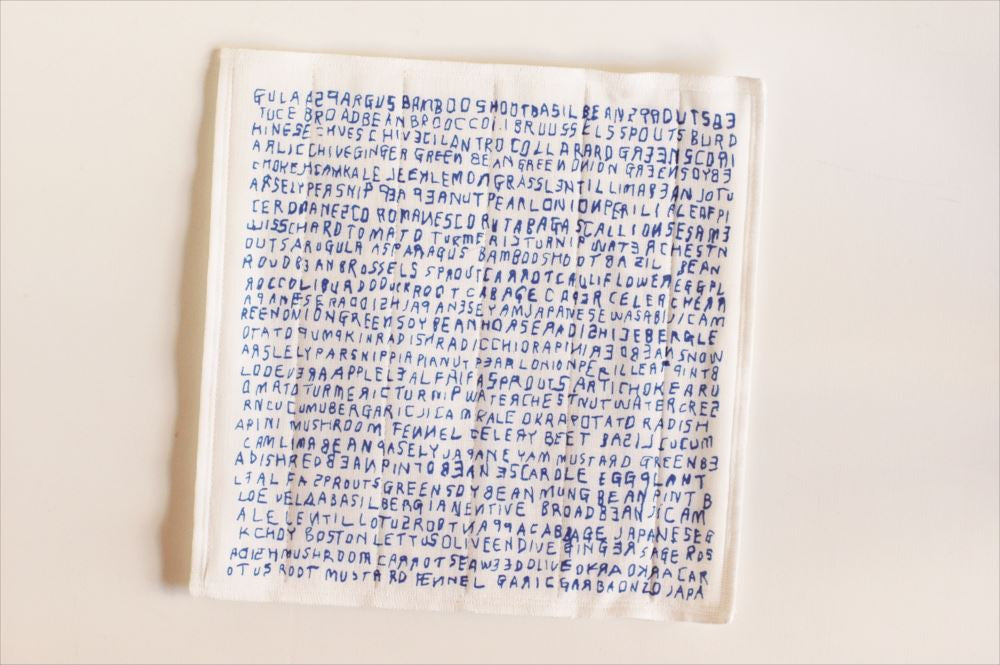 GULA ASPARGUS BAMBOO SHOOTBASIL BEANSPROUTSBE
TUCE BROADBEANBROOCCOLIBRUUSSELSSPOUTS BURD
HINESE CHVES CHIVECILANTROCOLLARARD GREENSCORI
ARLICCHIVEGINGER GREEN BEANGREENONION GREENSOYBE
KALE LEEKLEMONGRASSLENTILLIMABEAN LOTU
ARSELYPERSNIP PEA PEANUTPEARLONIONPERILLALEAFPI
ROMANESCO RUTABAGASCALLIONSESAME
WISSCHARDTOMATO TURMERICTURNIP WATERCHESTN
OUTSARUGULA ASPARAGUS BAMBOOSHOOTBAZIL BEAN
ROUDBEANBROSSELS SPROUTCARROTCAULIFLOWEREGGPL
ROCCOLIBURDODUCKROOT CABAGE CAPER CELERCHEAR
APANESERADDISHJAPANESEYAMJAPANESEWASABIJICAM
REENONIONGREENSOYBEANHORSERADISHICEBERGLE
OTATOPUMPKINRADISHRADICCHIORAPINIREDBEANSNOW
ARSLELYPARSNIPPIAPIANUTPEARLONIONPERILLEAPINTB
LODEVERAAPPLELEALFAIFASPROUTSARTICHOKEARU
OMATOTURMERICTURNIPWATERCHESTNUTWATERCRES
RNCUCUMUBERGARICJICAMAKALE OKRAPOTATO RADISH
APINI MUSHROOM FENNEL CELERY BEET BASILCUCUM
CAMLIMABEANPASELYJAPANEYAM MUSTARD GREENBE
ADISHREDBEANPINTOBEAN ESCAROLE EGGPLANT
LEALFASPROUTSGREENSOYBEAN MUNG BEANPINT B
LOE VELDABASILBERGIANENTIVE BROADBEANJICAM
ALELENTILLOTUSROOTNAPPACABBAGE JAPANESEE
KCHOY BOSTONLETTUSOLIVEENDIVE GINGERSAGE ROS
ADISHMUSHROOM CARROTSEAWEEDOLIVEOKRAOKRACAR
OTUSROOT MUSTARD FENNEL GARICGARBAONZO JAPA